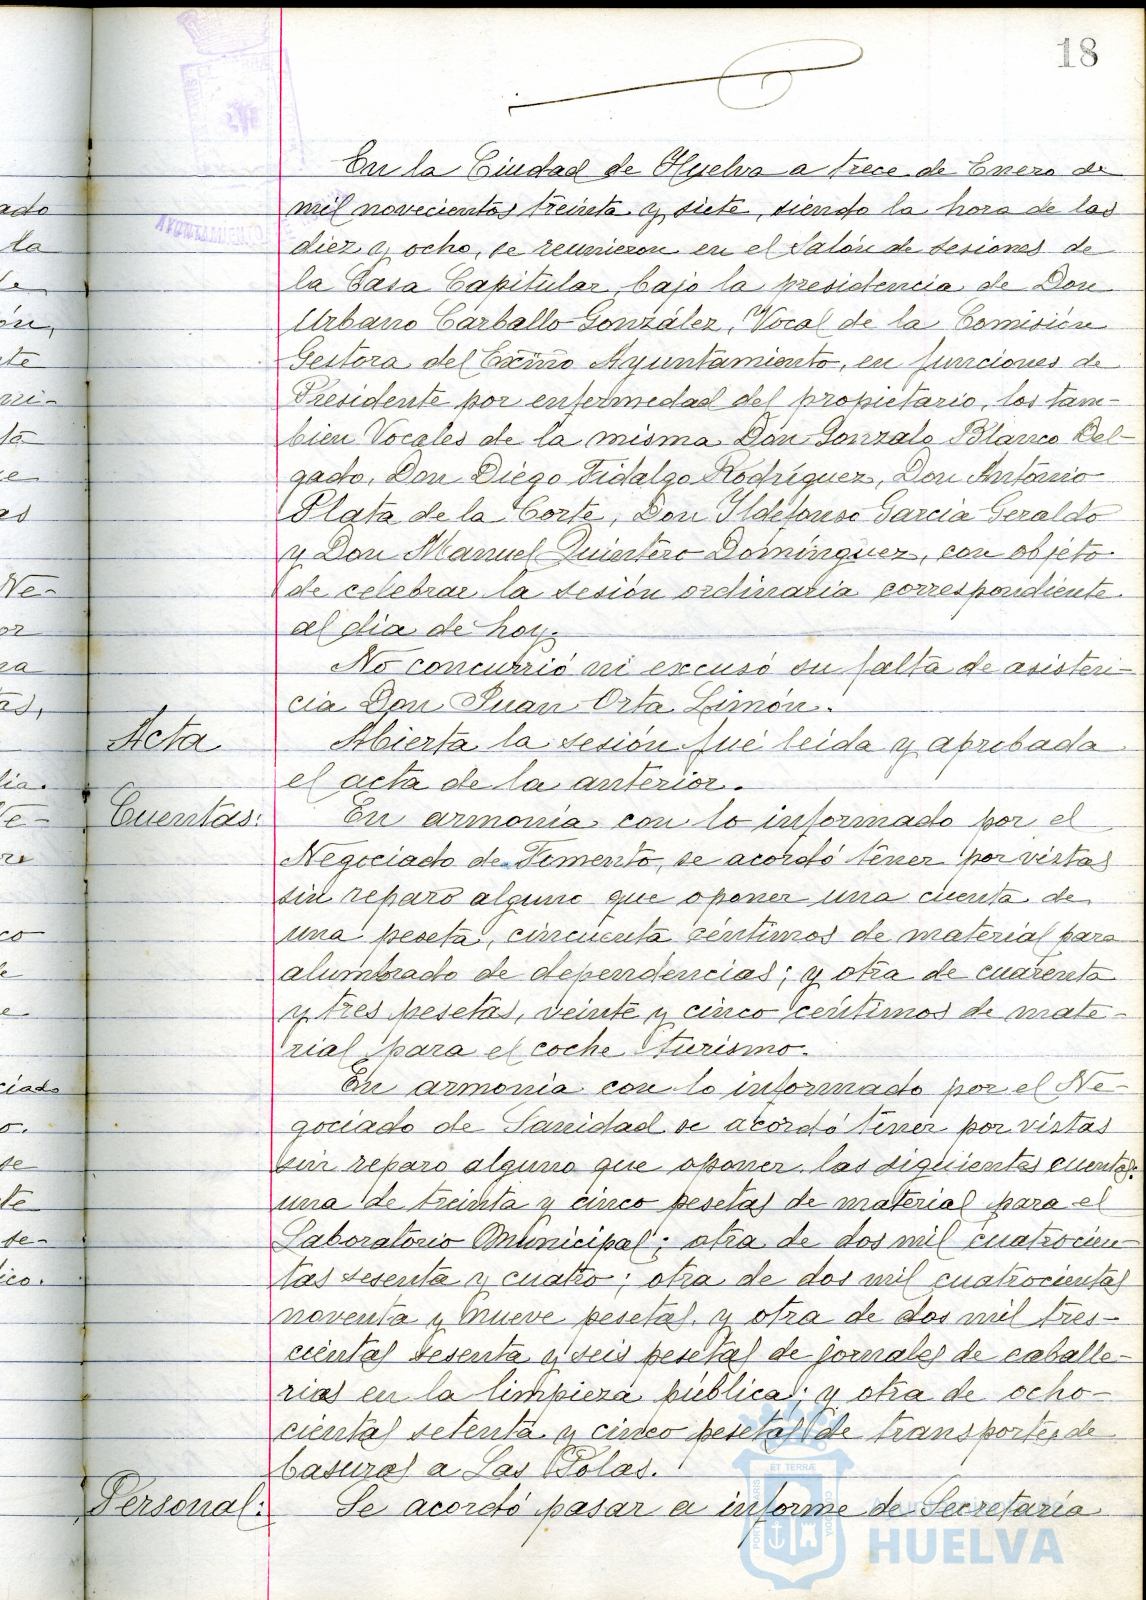 18
En la Ciudad de Huelva a trece de Enero de
mil novecientos treinta y siete, siendo la hora de las
diez y ocho, se reunieron en el Salón de sesiones de
la Casa Capitular, bajo la presidencia de Don
Urbano Carballo González, Vocal de la Comisión
Gestora del Excmo Ayuntamiento, en funciones de
Presidente por enfermedad del propietario, los tam-
bien Vocales de la misma Don Gonzalo Blanco Del-
gado, Don Diego Fidalgo Rodríguez, Don Antonio
Plata de la Corte, Don Ildefonso García Geraldo
y Don Manuel Quintero Domínguez, con objeto
de celebrar la sesión ordinaria correspondiente
al dia de hoy.
No concurrió ni excusó su falta de asisten-
cia Don Juan Orta Limón.
Acta
Abierta la sesión fué leida y aprobada
el acta de la anterior.
Cuentas:
En armonia con lo informado por el
Negociado de Fomento, se acordó tener por vistas
sin reparo alguno que oponer una cuenta de
una peseta, cincuenta céntimos de material para
alumbrado de dependencias; y otra de cuarenta
y tres pesetas, veinte y cinco céntimos de mate-
rial para el coche turismo.
En armonia con lo informado por el Ne-
gociado de Sanidad se acordó tener por vistas
sin reparo alguno que oponer las siguientes cuentas:
una de treinta y cinco pesetas de material para el
Laboratorio Municipal; otra de dos mil cuatrocien-
tas sesenta y cuatro; otra de dos mil cuatrocientas
noventa y nueve pesetas y otra de dos mil tres-
cientas sesenta y seis pesetas de jornales de caballe-
rias en la limpieza pública; y otra de ocho-
cientas setenta y cinco pesetas de transportes de
basuras a Las Bolas.
Personal:
Se acordó pasar a informe de Secretaría
HUELVA